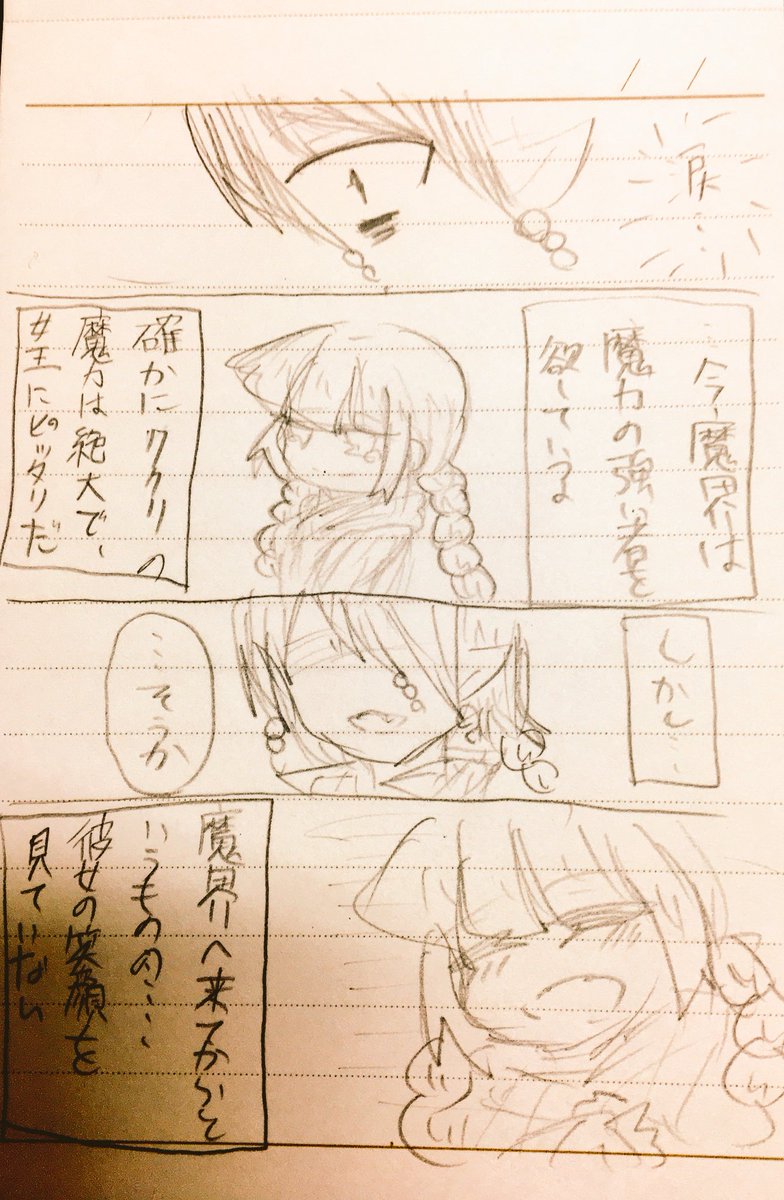 涙…
今魔界は
魔力の強い者を
欲している
確かにククリの
魔力は絶大で、
女王にピッタリだ
しかし…
…そうか
魔界へ来てからと
いうものの…
彼女の笑顔を
見ていない